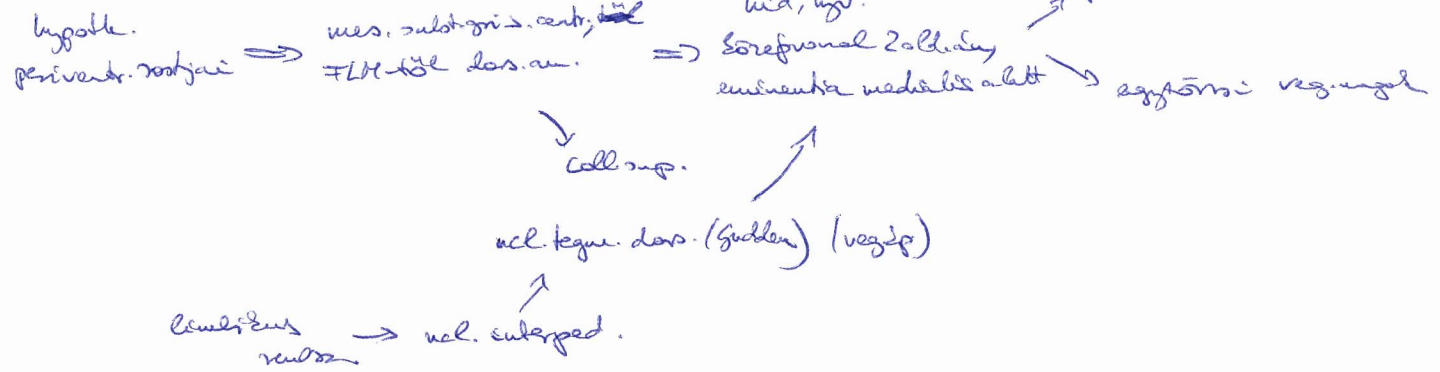 híd, nyv.
hypoth.
perivent. rostjai ⇒
mes. subst. gris. centr,
FLM-től dors. an. ⇒
középvonal 2 oldalán,
eminentia medialis alatt
agytörzsi veg. magok
coll sup.
ncl. tegm. dors. (Gudden) (vegép)
limbikus
rendsz → ncl. interped.